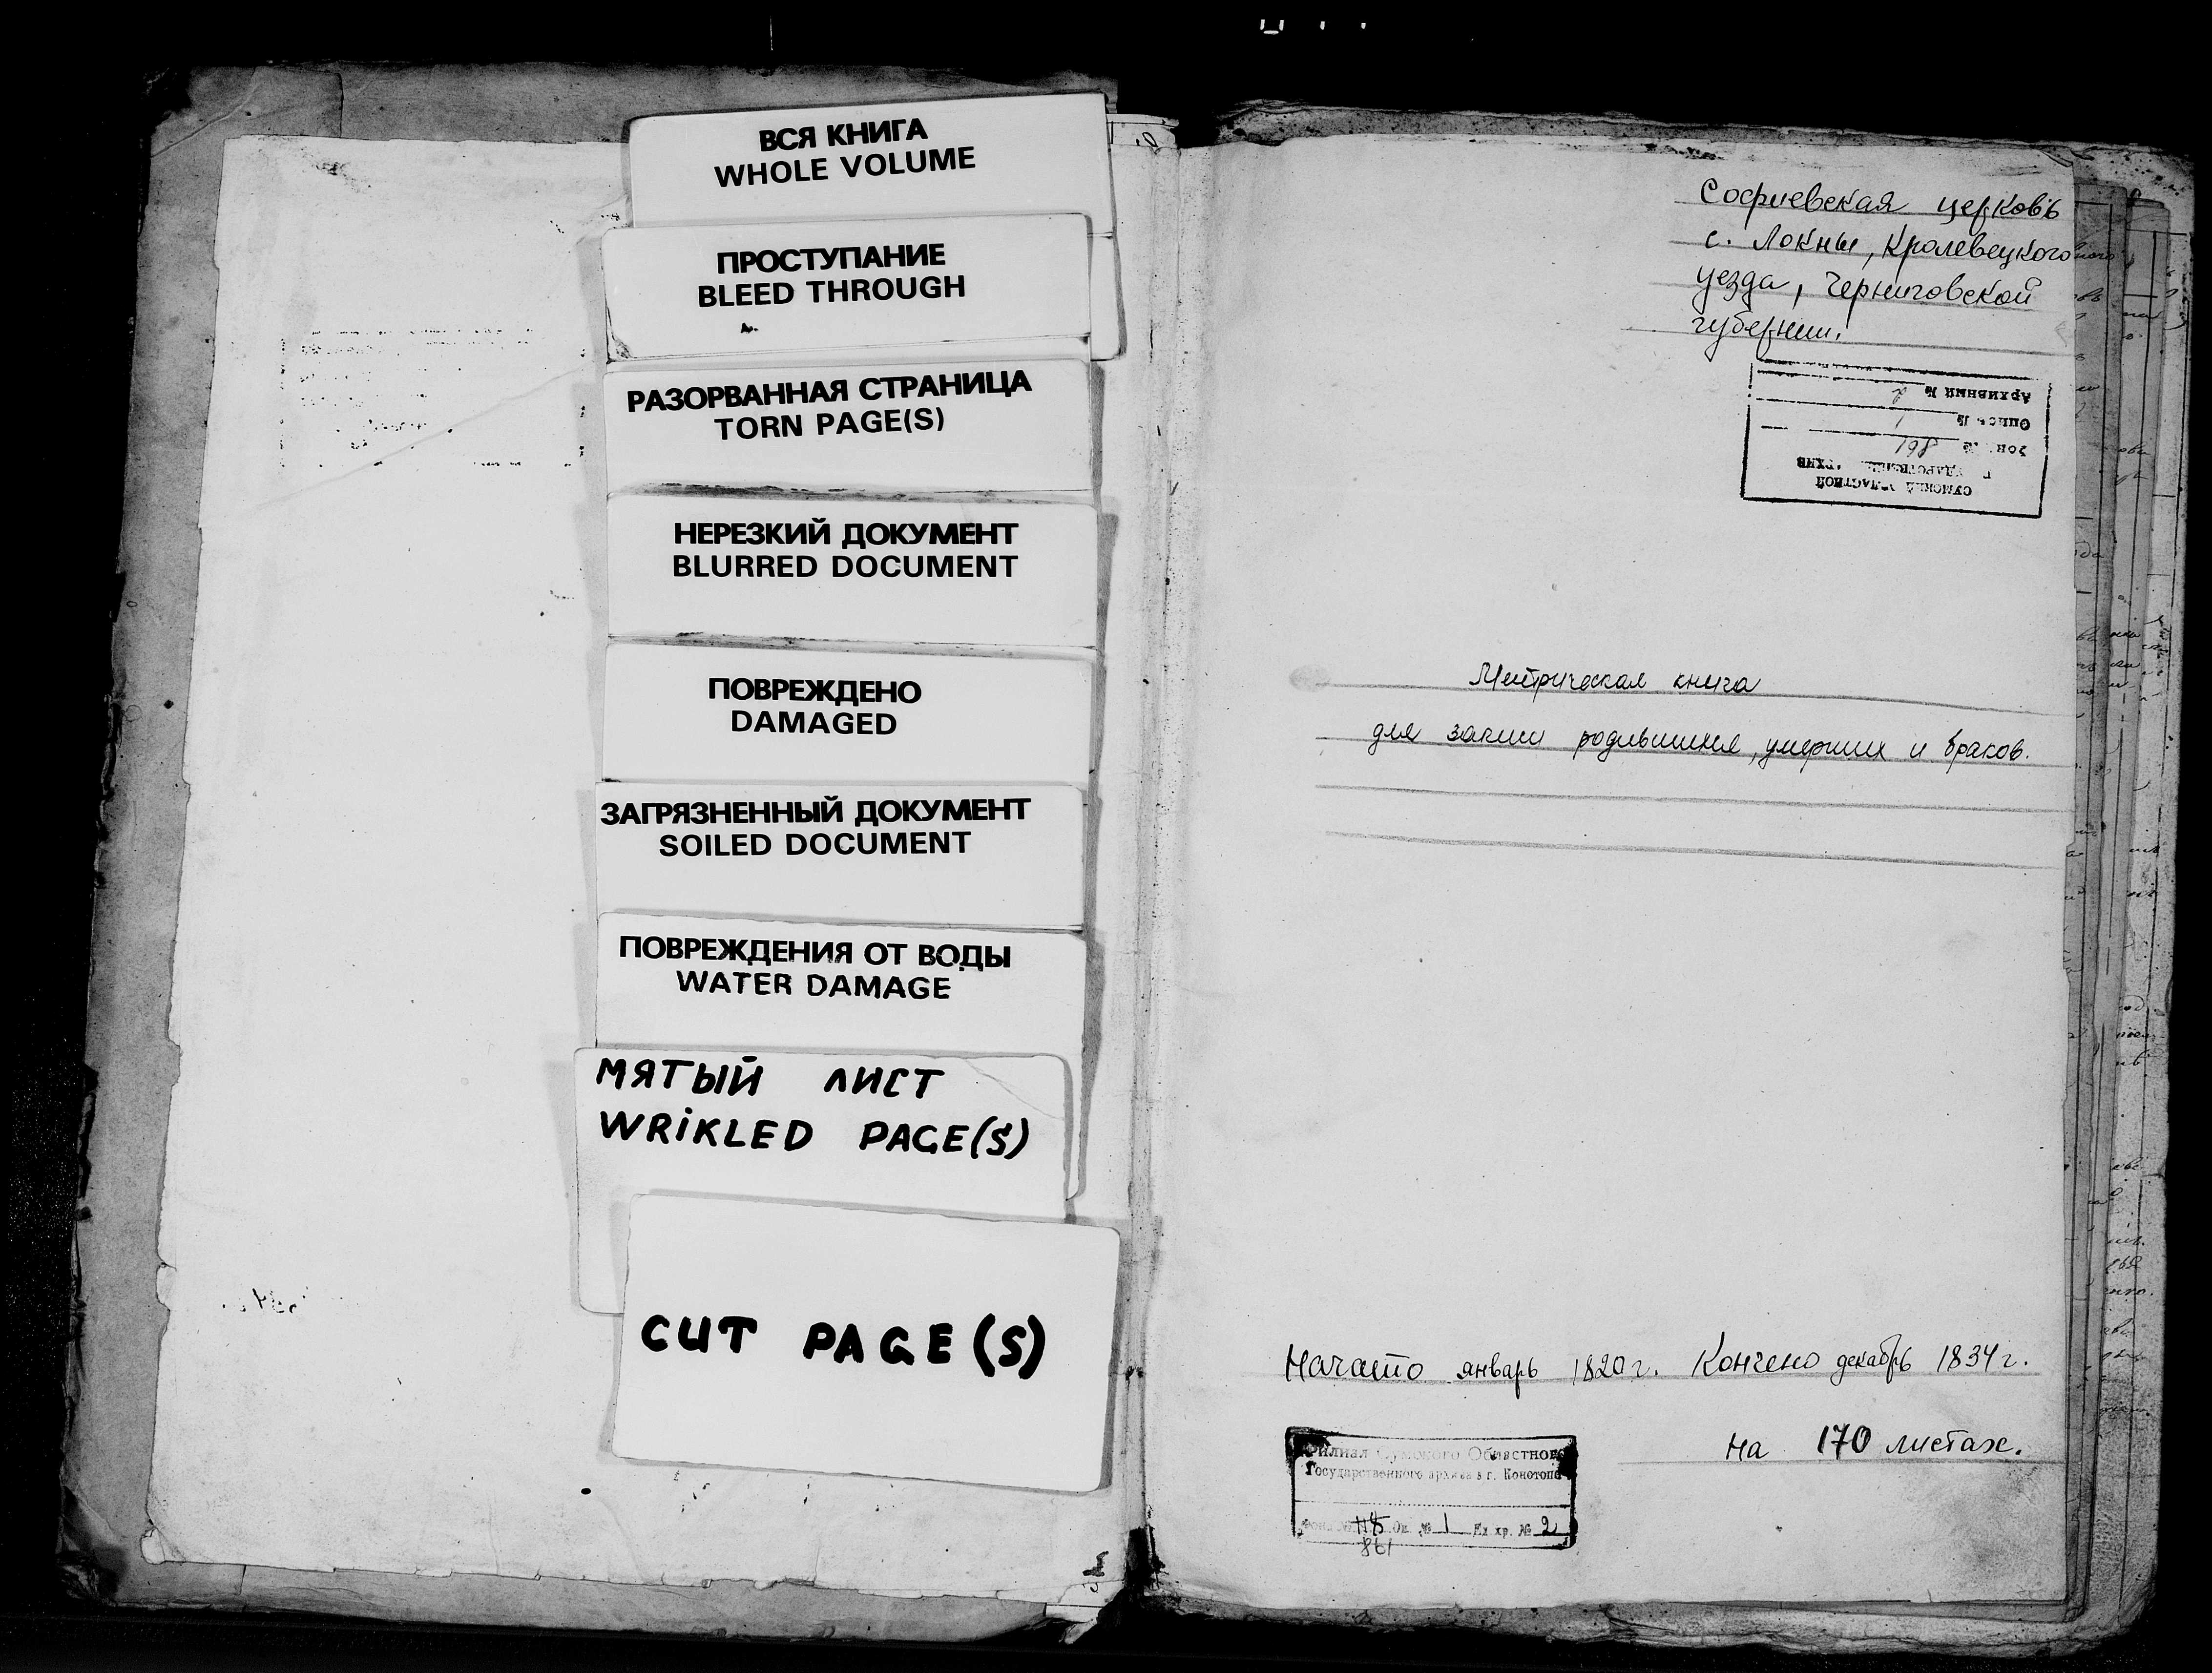 ВСЯ КНИГА
WHOLE VOLUME
ПРОСТУПАНИЕ
BLEED THROUGH
РАЗОРВАННАЯ СТРАНИЦА
TORN PAGE(S)
НЕРЕЗКИЙ ДОКУМЕНТ
BLURRED DOCUMENT
ПОВРЕЖДЕНО
DAMAGED
ЗАГРЯЗНЕННЫЙ ДОКУМЕНТ
SOILED DOCUMENT
ПОВРЕЖДЕНИЯ ОТ ВОДЫ
WATER DAMAGE
МЯТЫЙ ЛИСТ
WRIKLED PAGE(S)
CUT PAGE(S)
Софиевская церковь
с. Локны, Кролевецкого
уезда, Черниговской
губернии.
СУМСКИЙ
198
Опись № 1
Архивный № 2
Метрическая книга
для записи родившихся, умерших и браков.
Начато январь 1820 г. Кончено декабрь 1834 г.
на 170 листах.
Филиал Сумского Областного
Государственного архива в г. Конотопе
Фонд № 118 Оп. № 1 Ед. хр. № 2
861